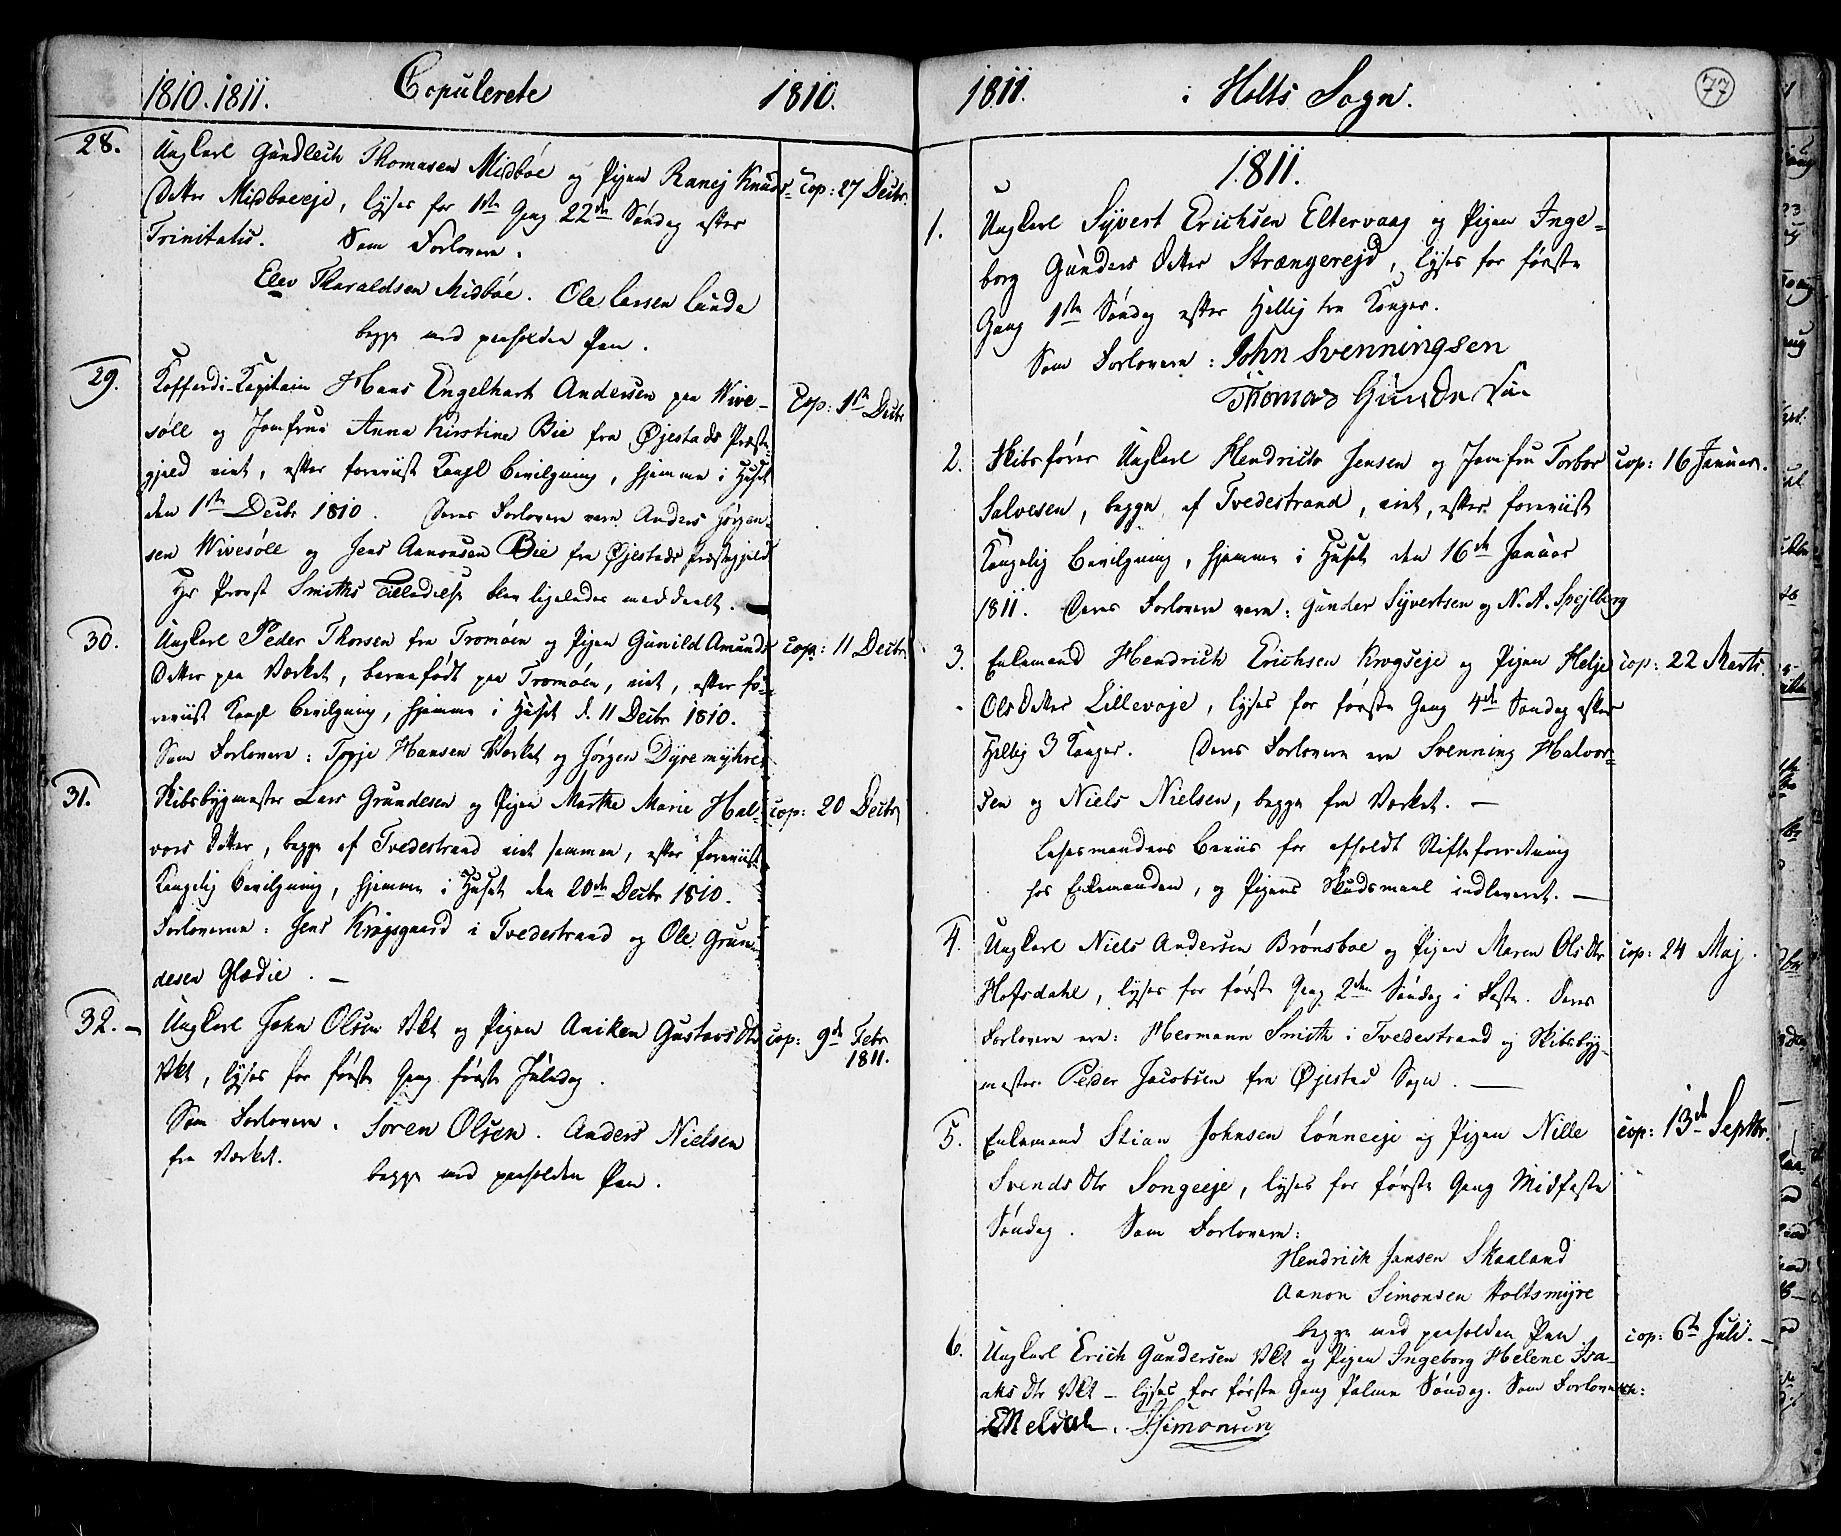 1810.1811. Copulerede 1810.
28. Ungkarl Gundlech Thomasen Midböe og Pigen Ranej Knuds- cop: 27 Decbr.
Datter Midboeeje, lyses for 1ste Gang 22de Söndag efter
Trinitatis. Som Forlovere.
Elev Tharaldsen Midböe. Ole Larsen Lunde
begge med paaholden Pen.
29. Kofferdi-Kapitain Hans Engelhart Andersen paa Wive- Cop: 1ste Decbr
söll og Jomfrue Anna Kirstine Bie fra Øjestads Præste-
gjeld viet, efter foreviist Kongl Bevilgning, hjemme i Huset
den 1ste Decbr 1810. Deres Forlovere vare Anders Jörgen-
sen Wivesöll og Jens Aanonsen Bie fra Øjestads Præstegjeld
Hr Provst Smiths Tilladelse blev ligeledes meddeelt.
30. Ungkarl Peder Thorsen fra Tromöen og Pigen Gunild Amunds cop: 11 Decbr.
Datter paa Værket, barnefödt paa Tromöen, viet, efter fo-
reviist Kongl Bevilgning, hjemme i Huset d. 11 Decbr 1810.
Som Forlovere: Torje Hansen Værket og Jörgen Dyremyhre
31. Skibsbygmester Lars Grundesen og Pigen Marthe Marie Hal- cop: 20 Decbr
vors Datter, begge af Tvedestrand viet sammen, efter foreviist
Kongelig Bevilgning, hjemme i Huset den 20de Decbr 1810.
Forloverne: Jens Krogsgaard i Tvedestrand og Ole Grun-
desen Glödie. —
32. — Ungkarl John Olsen Vkt og Pigen Aniken Gustavs Dtr cop: 9de Febr
1811.
Vkt, lyses for förste Gang förste Juledag.
Som Forlovere. Soren Olsen. Anders Nielsen
fra Værket.
begge med paaholden Pen.
1811. i Holts Sogn. 77
1811.
1. Ungkarl Syvert Erichsen Eltervaag og Pigen Inge-
borg Gunders Datter Strængereid, lyses for förste
Gang 1ste Söndag efter Hellig tre Konger.
Som Forlovere: John Svenningsen
Thomas Gunder Søn
2. Skibsförer Ungkarl Hendrich Jensen og Jomfru Torbor cop: 16 Januar.
Salvesen, begge af Tvedestrand, viet, efter foreviist
Kongelig Bevilgning, hjemme i Huset den 16de Januar
1811. Deres Forlovere vare: Gunder Syvertsen og N. A. Spejlberg
3. Enkemand Hendrich Erichsen Krogseje og Pigen Helje cop: 22 Marts.
Ols Datter Lillevoje, lyses for förste Gang 4de Söndag efter
Hellig 3 Konger. Deres Forlovere ere Svenning Halvor-
sen og Niels Nielsen, begge fra Værket. —
Lehnsmandens Beviis for afholdt Skifteforretning
hos Enkemanden, og Pigens Skudsmaal indleveret. —
4. Ungkarl Niels Andersen Brönsboe og Pigen Maren Ols Dtr cop: 24 Maj.
Hofsdahl, lyses for förste Gang 2den Söndag i Faste. Deres
Forlovere ere: Hermann Smith i Tvedestrand og Skibsbyg-
mester Peder Jacobsen fra Øjestad Sogn. —
5. Enkemand Stian Johnsen Lönneeje og Pigen Nille cop: 13de Septbr.
Svends Dtr Songeeje, lyses for förste Gang Midfaste
Söndag. Som Forlovere:
Hendrich Jansen Skaaland
Aanon Simonsen Holtsmyre
begge med paaholden Pen
6. Ungkarl Erich Gundersen Vkt og Pigen Ingeborg Helene Isa- cop: 6te Juli. —
aks Dtr Vkt — lyses for förste Gang Palme Söndag. Som Forlovere:
Meldal. Simonsen